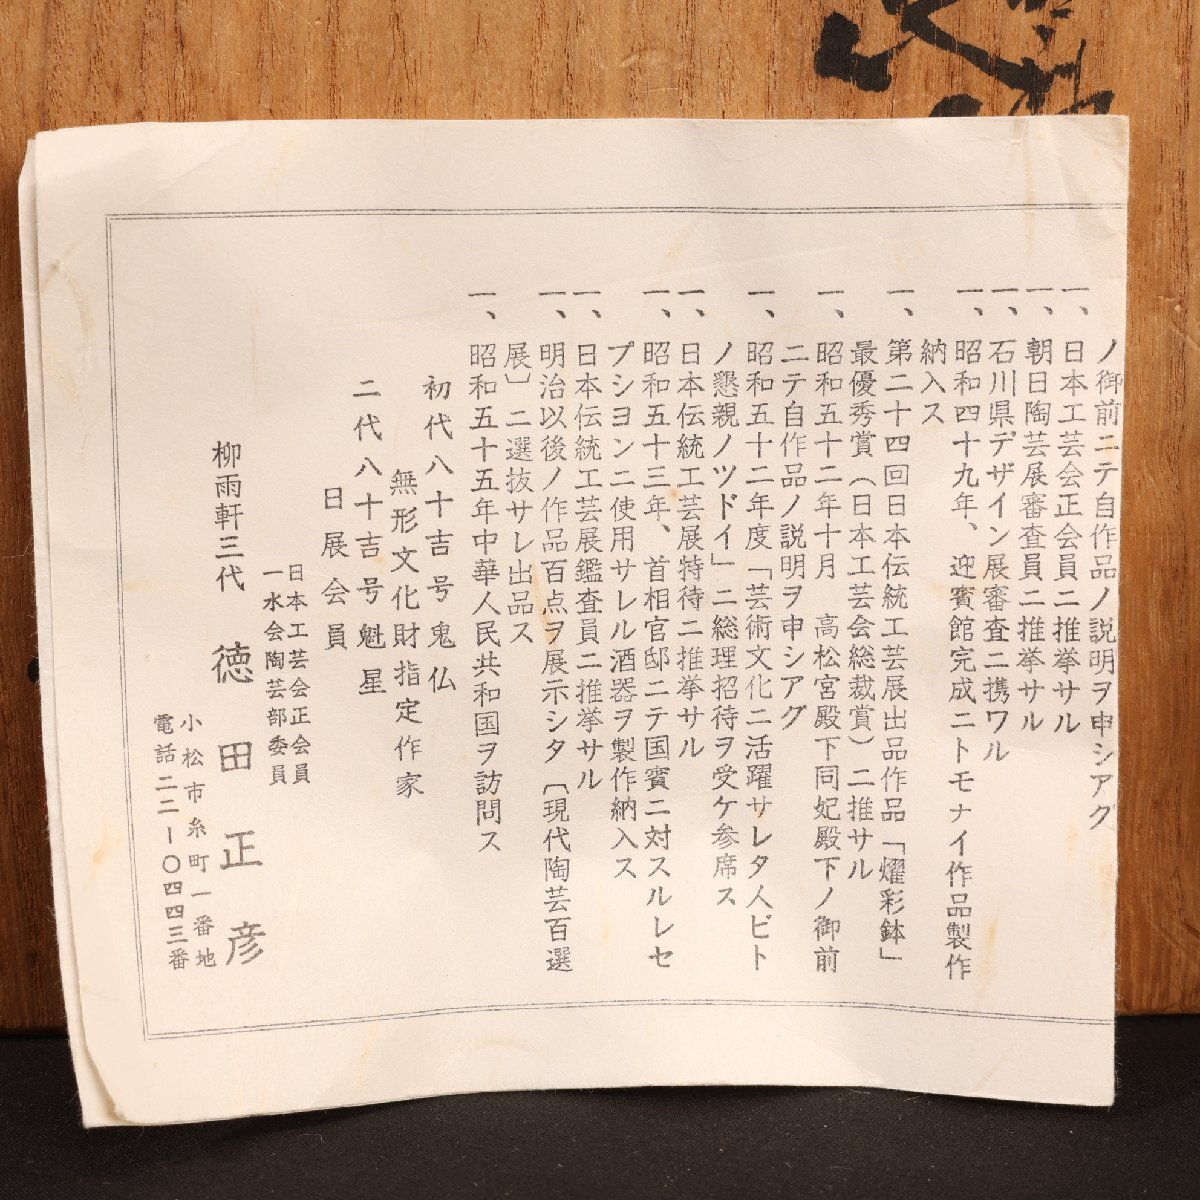 ノ御前ニテ自作品ノ説明ヲ申シアグ
一、日本工芸会正会員ニ推挙サル
一、朝日陶芸展審査員ニ推挙サル
一、石川県デザイン展審査ニ携ワル
一、昭和四十九年、迎賓館完成ニトモナイ作品製作
納入ス
一、第二十四回日本伝統工芸展出品作品「燿彩鉢」
最優秀賞（日本工芸会総裁賞）ニ推サル
一、昭和五十二年十月　高松宮殿下同妃殿下ノ御前
ニテ自作品ノ説明ヲ申シアグ
一、昭和五十二年度「芸術文化ニ活躍サレタ人ビト
ノ懇親ノツドイ」ニ総理招待ヲ受ケ参席ス
一、日本伝統工芸展特待ニ推挙サル
一、昭和五十三年、首相官邸ニテ国賓ニ対スルレセ
プションニ使用サレル酒器ヲ製作納入ス
一、日本伝統工芸展鑑査員ニ推挙サル
一、明治以後ノ作品百点ヲ展示シタ〔現代陶芸百選
展〕ニ選抜サレ出品ス
一、昭和五十五年中華人民共和国ヲ訪問ス
初代八十吉号鬼仏
無形文化財指定作家
二代八十吉号魁星
日展会員
日本工芸会正会員
一水会陶芸部委員
柳雨軒三代　徳田正彦
小松市糸町一番地
電話二二ー〇四四三番